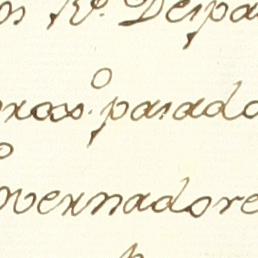 os R.^s Despa
pasado
overnadore